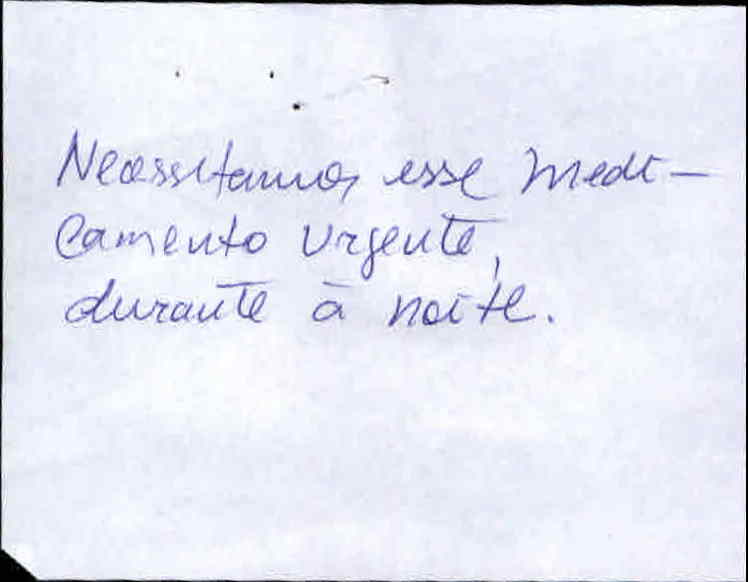 Necessitamos esse medi-
camento urgente,
durante à noite.